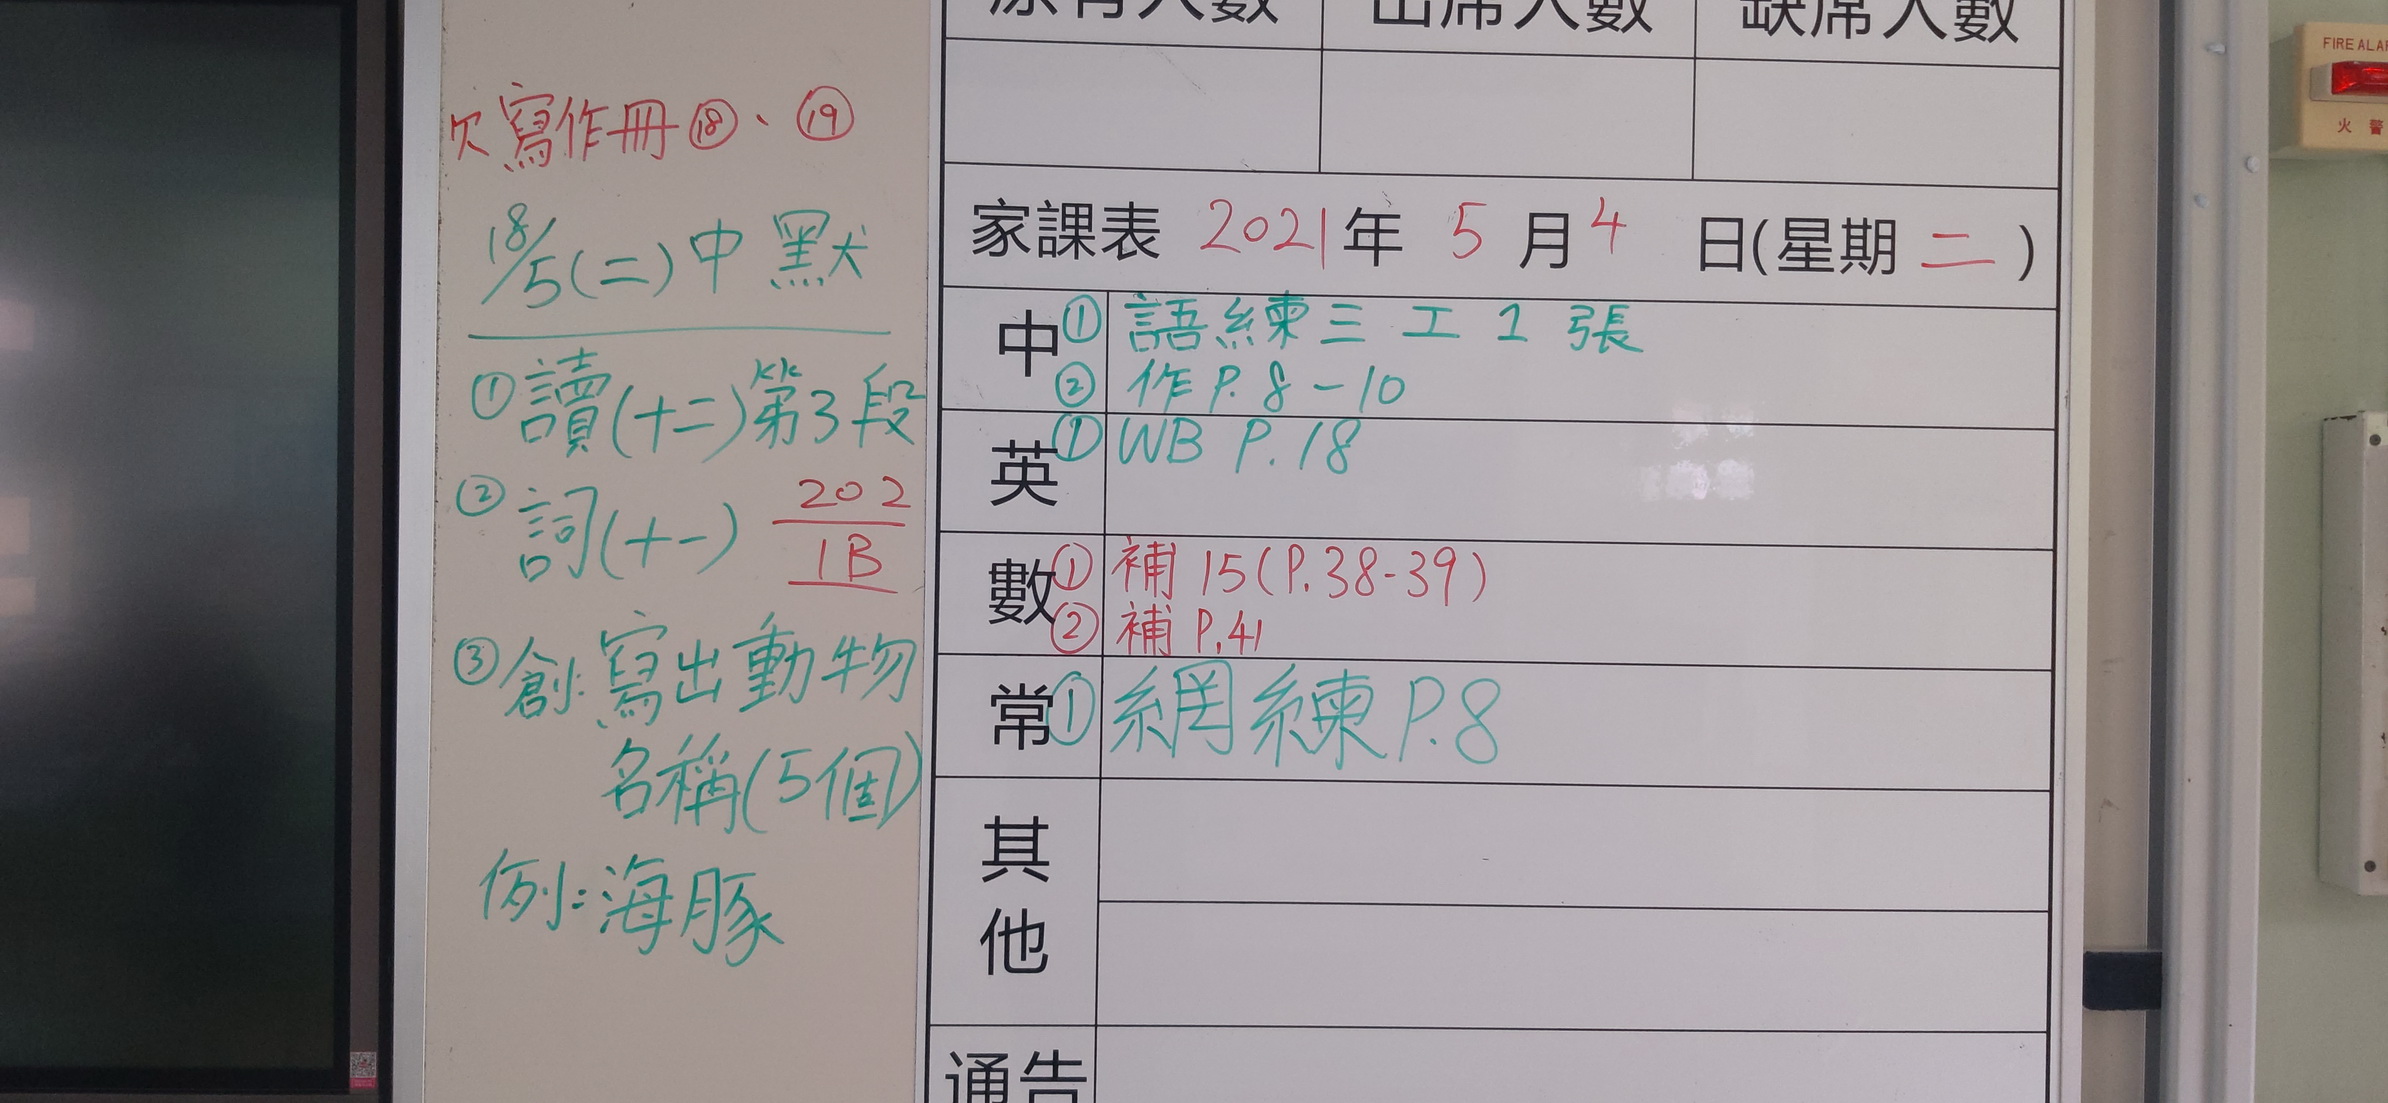 欠寫作冊⑱、⑲
18/5(二)中默
①讀(十二)第3段
②詞(十一)
202
1B
③創:寫出動物
名稱(5個)
例:海豚
原有人數 出席人數 缺席人數
家課表 2021年 5月4日(星期二)
中 ① 語練三 工1張
② 作P.8-10
英 ① WB P.18
數 ① 補15(P.38-39)
② 補P.41
常 ① 網練P.8
其他
通告
FIRE ALAR
火警